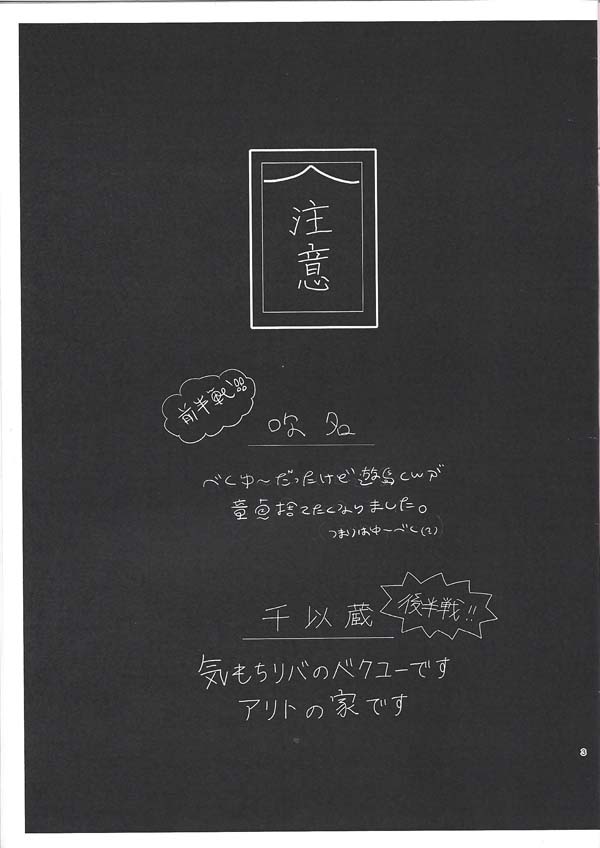 注意
前半戦!!
吹名
べくゆ〜だったけど遊馬くんが
童貞捨てたくなりました。
つまりはゆーべく(?)
千以蔵
後半戦!!
気もちリバのベクユーです
アリトの家です
3